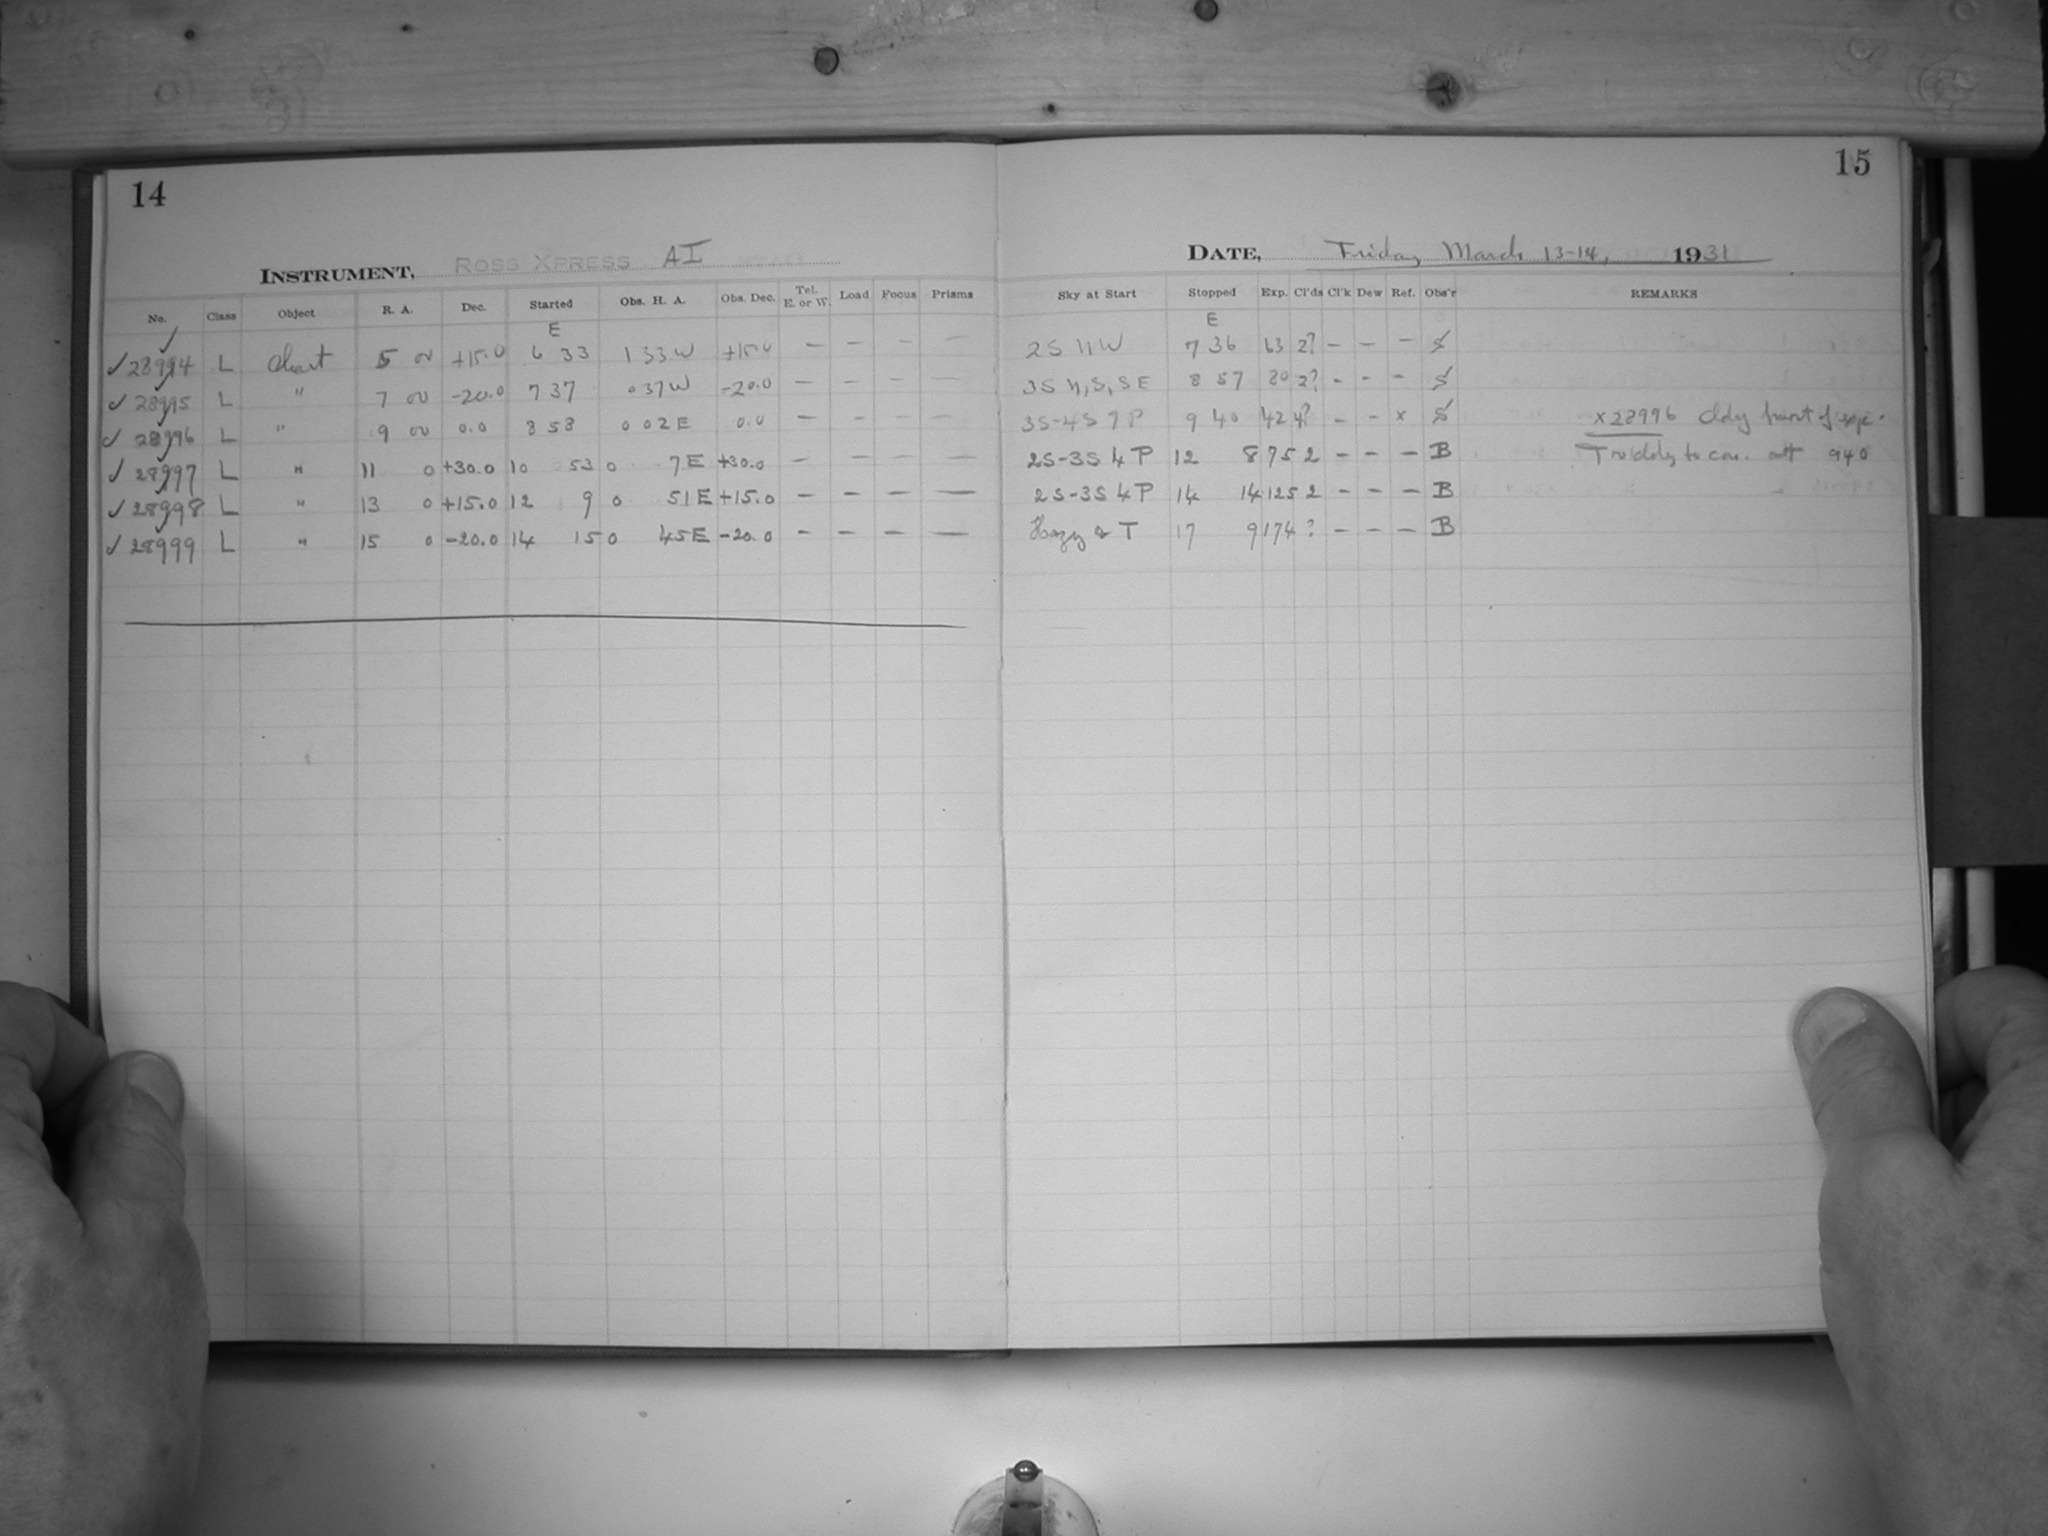 14
INSTRUMENT, ROSS XPRESS AI
No. Class Object R. A. Dec. Started Obs. H. A. Obs. Dec. Tel. E. or W. Load Focus Prisms
E
✓ 28994 L Chart 5 00 +15.0 6 33 1 33 W +15.0 — — — —
✓ 28995 L " 7 00 -20.0 7 37 0 37 W -20.0 — — — —
✓ 28996 L " 9 00 0.0 8 58 0 02 E 0.0 — — — —
✓ 28997 L " 11 0 +30.0 10 53 0 7 E +30.0 — — — —
✓ 28998 L " 13 0 +15.0 12 9 0 51 E +15.0 — — — —
✓ 28999 L " 15 0 -20.0 14 15 0 45 E -20.0 — — — —
15
DATE, Friday March 13-14, 1931
Sky at Start Stopped Exp. Cl'ds Cl'k Dew Ref. Obs'r REMARKS
E
2S NW 7 36 63 2? — — — S
3S N, S, SE 8 57 80 2? - - - S
3S-4S 7 P 9 40 42 4? - - x S x28996 cldy most of exp.
2S-3S 4 P 12 8 75 2 - - — B Too cldy to con. at 940
2S-3S 4 P 14 14 125 2 - - — B
Hazy & T 17 9 174 ? - - — B